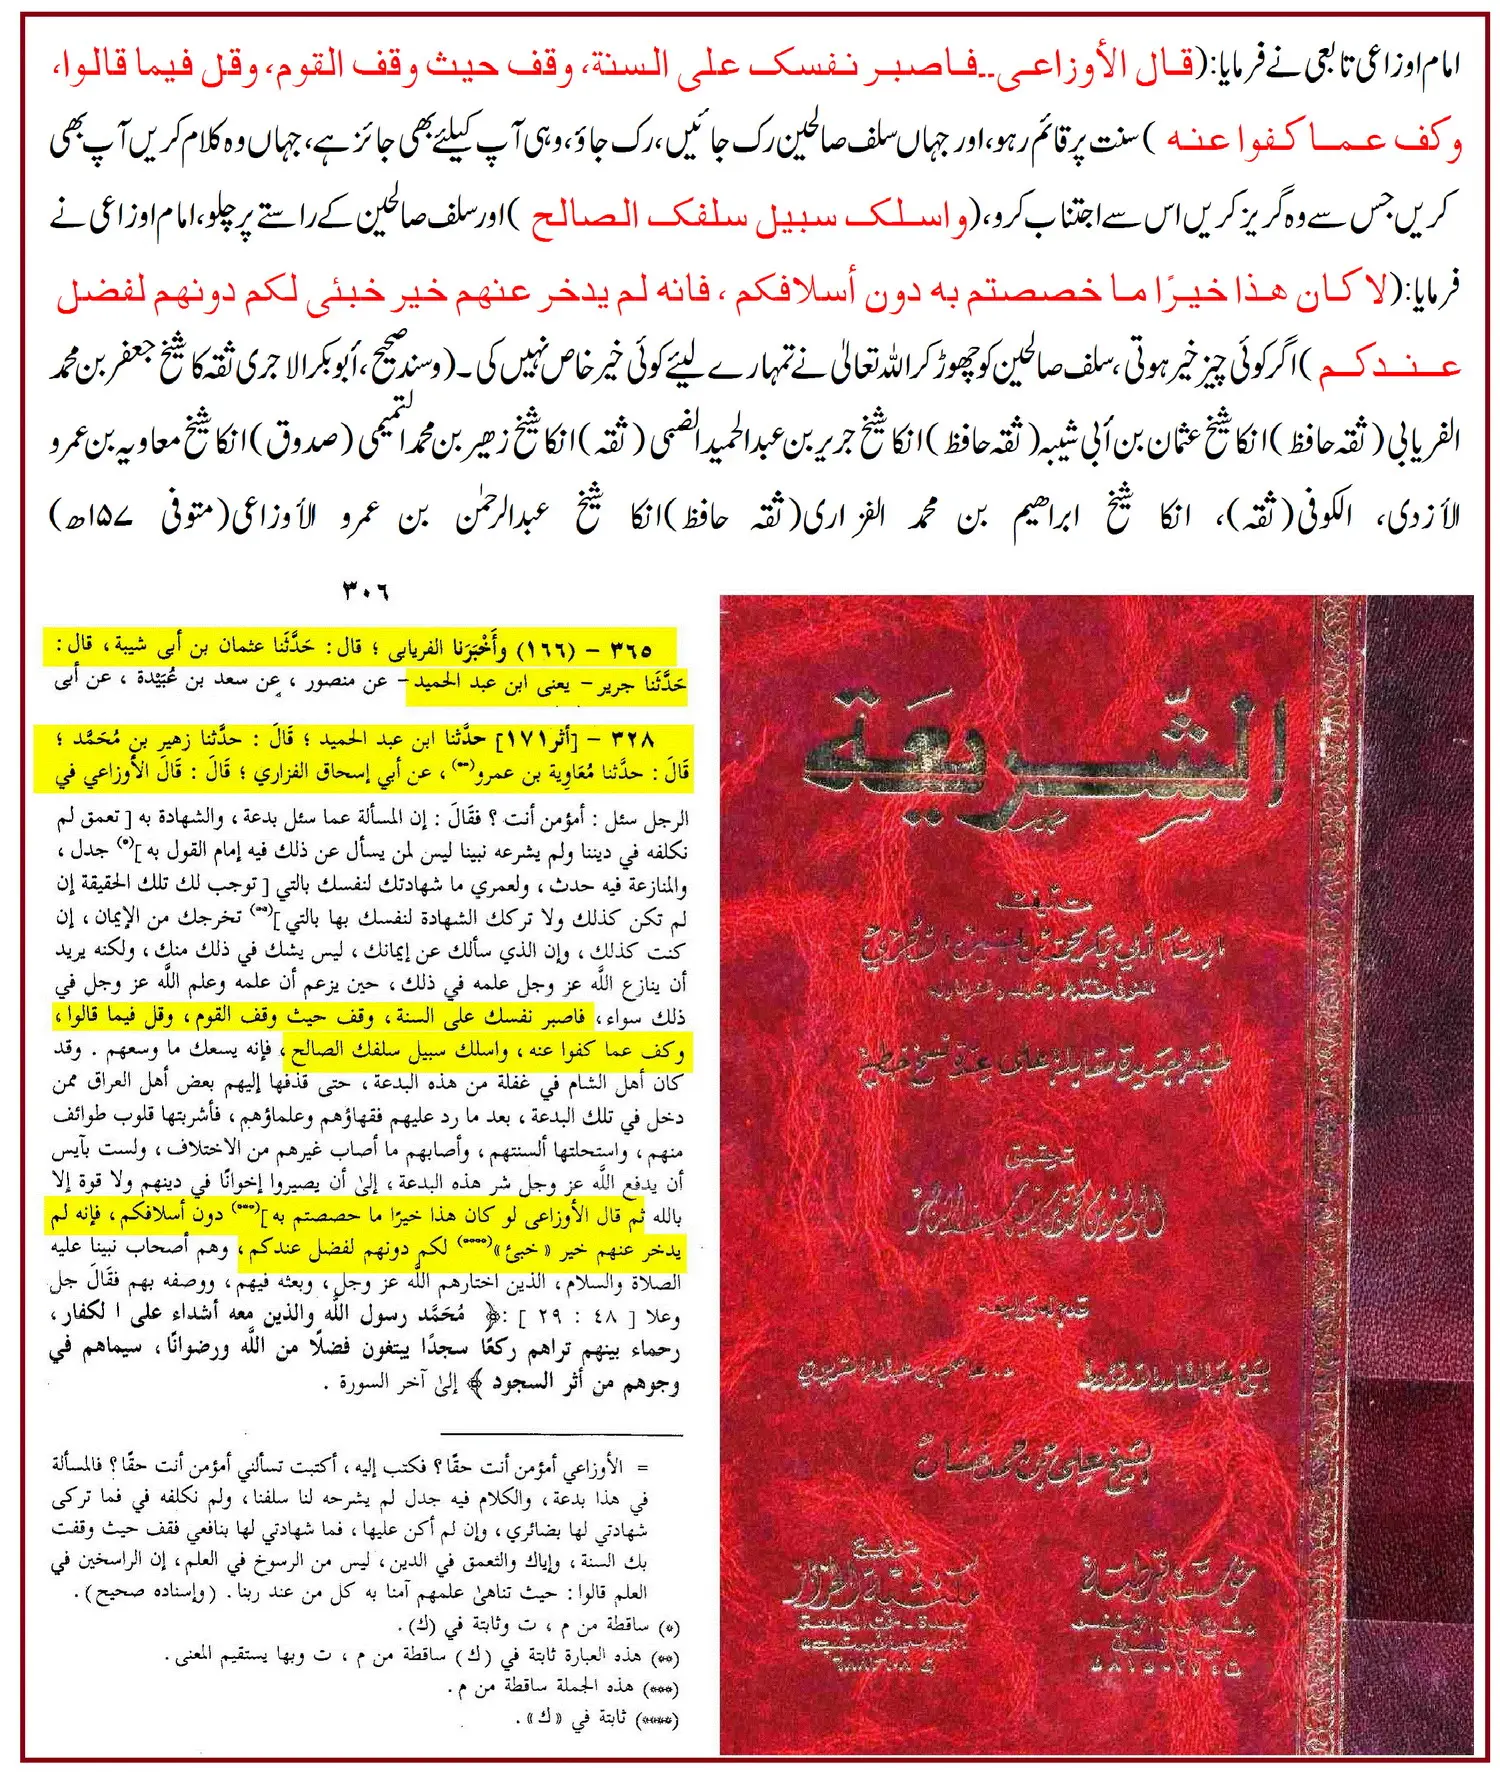 امام اوزاعی تابعی نے فرمایا:(قال الأوزاعی۔۔فاصبر نفسک علی السنة، وقف حیث وقف القوم، وقل فیما قالوا،
وکف عما کفوا عنه )سنت پر قائم رہو، اور جہاں سلف صالحین رک جائیں، رک جاؤ، وہی آپ کیلئے بھی جائز ہے، جہاں وہ کلام کریں آپ بھی
کریں جس سے وہ گریز کریں اس سے اجتناب کرو،(واسلک سبیل سلفک الصالح )اور سلف صالحین کے راستے پر چلو، امام اوزاعی نے
فرمایا:(لا کان هذا خیرًا ما خصصتم به دون أسلافکم ، فانه لم یدخر عنهم خیر خبئی لکم دونهم لفضل
عندکم )اگر کوئی چیز خیر ہوتی، سلف صالحین کو چھوڑ کر اللہ تعالیٰ نے تمہارے لیئے کوئی خیر خاص نہیں کی۔(وسند صحیح، أبو بکر الاجری ثقہ کا شیخ جعفر بن محمد
الفریابی(ثقہ حافظ)انکا شیخ عثمان بن أبی شیبہ(ثقہ حافظ)انکا شیخ جریر بن عبد الحمید الضبی(ثقہ)انکا شیخ زھیر بن محمد التمیمی(صدوق)انکا شیخ معاویہ بن عمرو
الأزدی، الکوفی(ثقہ)، انکا شیخ ابراھیم بن محمد الفزاری(ثقہ حافظ)انکا شیخ عبدالرحمٰن بن عمرو الأوزاعی(متوفی ۱۵۷ھ)
٣٠٦
٣٦٥ - (١٦٦) وأَخْبَرَنا الفريابى ؛ قال : حَدَّثَنا عثمان بن أبى شيبة ، قال :
حَدَّثَنا جرير - يعنى ابن عبد الحميد - عن منصور ، عن سعد بن عُبَيْدة ، عن أبى
٣٢٨ - [أثر ١٧١] حدَّثنا ابن عبد الحميد ؛ قالَ : حدَّثنا زهير بن مُحَمَّد ؛
قَالَ : حدَّثنا مُعَاوِية بن عمرو(**) ، عن أبي إسحاق الفزاري ؛ قَالَ : قَالَ الأوزاعي في
الرجل سئل : أمؤمن أنت ؟ فقَالَ : إن المسألة عما سئل بدعة ، والشهادة به [ تعمق لم
نكلفه في ديننا ولم يشرعه نبينا ليس لمن يسأل عن ذلك فيه إمام القول به ](*) جدل ،
والمنازعة فيه حدث ، ولعمري ما شهادتك لنفسك بالتي [ توجب لك تلك الحقيقة إن
لم تكن كذلك ولا تركك الشهادة لنفسك بها بالتي ](**) تخرجك من الإيمان ، إن
كنت كذلك ، وإن الذي سألك عن إيمانك ، ليس يشك في ذلك منك ، ولكنه يريد
أن ينازع اللَّه عز وجل علمه في ذلك ، حين يزعم أن علمه وعلم اللَّه عز وجل في
ذلك سواء، فاصبر نفسك على السنة ، وقف حيث وقف القوم ، وقل فيما قالوا ،
وكف عما كفوا عنه ، واسلك سبيل سلفك الصالح ، فإنه يسعك ما وسعهم . وقد
كان أهل الشام في غفلة من هذه البدعة ، حتى قذفها إليهم بعض أهل العراق ممن
دخل في تلك البدعة ، بعد ما رد عليهم فقهاؤهم وعلماؤهم ، فأشربتها قلوب طوائف
منهم ، واستحلتها ألسنتهم ، وأصابهم ما أصاب غيرهم من الاختلاف ، ولست بآيس
أن يدفع اللَّه عز وجل شر هذه البدعة ، إلىٰ أن يصيروا إخوانًا في دينهم ولا قوة إلا
بالله ثم قال الأوزاعى لو كان هذا خيرًا ما حصصتم به ](***) دون أسلافكم ، فإنه لم
يدخر عنهم خير « خبئ»(****) لكم دونهم لفضل عندكم ، وهم أصحاب نبينا عليه
الصلاة والسلام ، الذين اختارهم اللَّه عز وجل ، وبعثه فيهم ، ووصفه بهم فقَالَ جل
وعلا [ ٤٨ : ٢٩ ] :﴿ مُحَمَّد رسول اللَّه والذين معه أشداء على ا لكفار ،
رحماء بينهم تراهم ركعًا سجدًا يبتغون فضلًا من اللَّه ورضوانًا ، سيماهم في
وجوهم من أثر السجود ﴾ إلىٰ آخر السورة .
= الأوزاعي أمؤمن أنت حقًا ؟ فكتب إليه ، أكتبت تسألني أمؤمن أنت حقًا ؟ فالمسألة
في هذا بدعة ، والكلام فيه جدل لم يشرحه لنا سلفنا ، ولم نكلفه في فما تركى
شهادتي لها بضائري ، وإن لم أكن عليها ، فما شهادتي لها بنافعي فقف حيث وقفت
بك السنة ، وإياك والتعمق في الدين ، ليس من الرسوخ في العلم ، إن الراسخين في
العلم قالوا : حيث تناهىٰ علمهم آمنا به كل من عند ربنا . (وإسناده صحيح) .
(*) ساقطة من م ، ت وثابتة في (ك) .
(**) هذه العبارة ثابتة في ( ك ) ساقطة من م ، ت وبها يستقيم المعنى .
(***) هذه الجملة ساقطة من م .
(****) ثابتة في « ك» .
الشريعة
تأليف
للإمام أبي بكر محمد بن الحسين الآجري
طبعة جديدة مقابلة على عدة نسخ خطية
تحقيق
الوليد بن محمد بن نبيه سيف النصر
قدم له وراجعه
الشيخ عبد القادر الأرنؤوط
د. عاصم بن عبد الله القريوتي
الشيخ علي بن حسن
مؤسسة قرطبة
توزيع
مكتبة الخراز